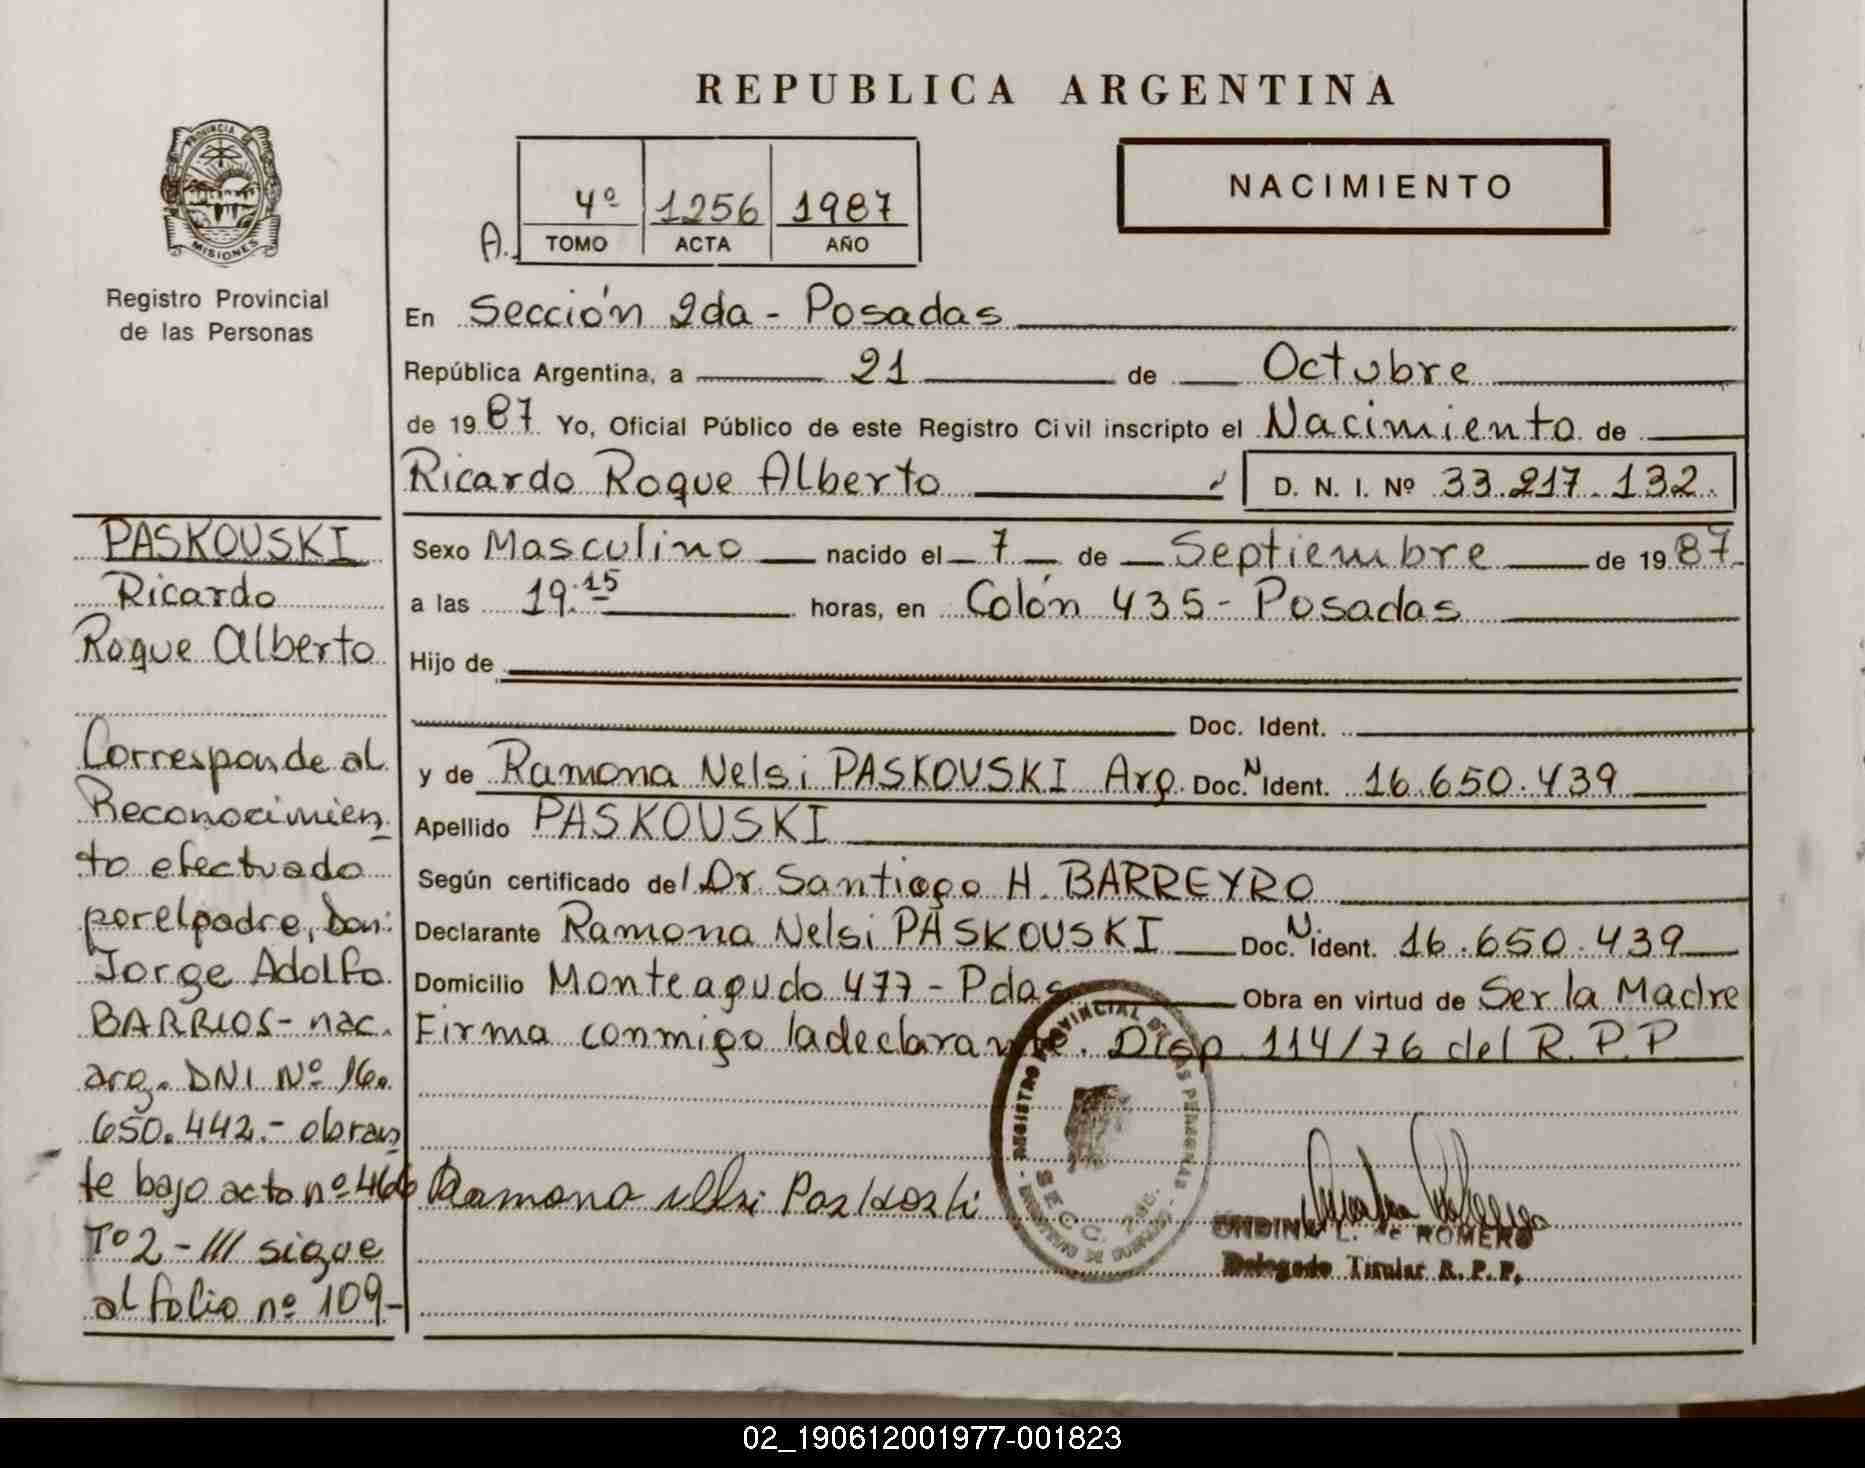 REPUBLICA ARGENTINA
PROVINCIA DE
MISIONES
Registro Provincial
de las Personas
A. 4º 1256 1987
TOMO ACTA AÑO
NACIMIENTO
En Sección 2da - Posadas
República Argentina, a 21 de Octubre
de 1987 Yo, Oficial Público de este Registro Civil inscripto el Nacimiento de
Ricardo Roque Alberto D. N. I. Nº 33.217.132.
Sexo Masculino nacido el 7 de Septiembre de 1987
a las 19:15 horas, en Colón 435 - Posadas
Hijo de
Doc. Ident.
y de Ramona Nelsi PASKOUSKI Arg. Doc. N Ident. 16.650.439
Apellido PASKOUSKI
Según certificado del Dr Santiago H. BARREYRO
Declarante Ramona Nelsi PASKOUSKI Doc. N Ident. 16.650.439
Domicilio Monteagudo 477 - Pdas Obra en virtud de Ser la Madre
Firma conmigo la declarante. Disp 114/76 del R.P.P
PASKOUSKI
Ricardo
Roque Alberto
Corresponde al
Reconocimien
to efectuado
por el padre, Don:
Jorge Adolfo
BARRIOS - nac.
arg. DNI Nº 16.
650.442.- obran
te bajo acta nº 466
Tº 2 - III sigue
al folio nº 109 -
REGISTRO PROVINCIAL DE LAS PERSONAS
SECC. 2da.
L. de ROMERO
Delegado Titular R. P. P.
02_190612001977-001823